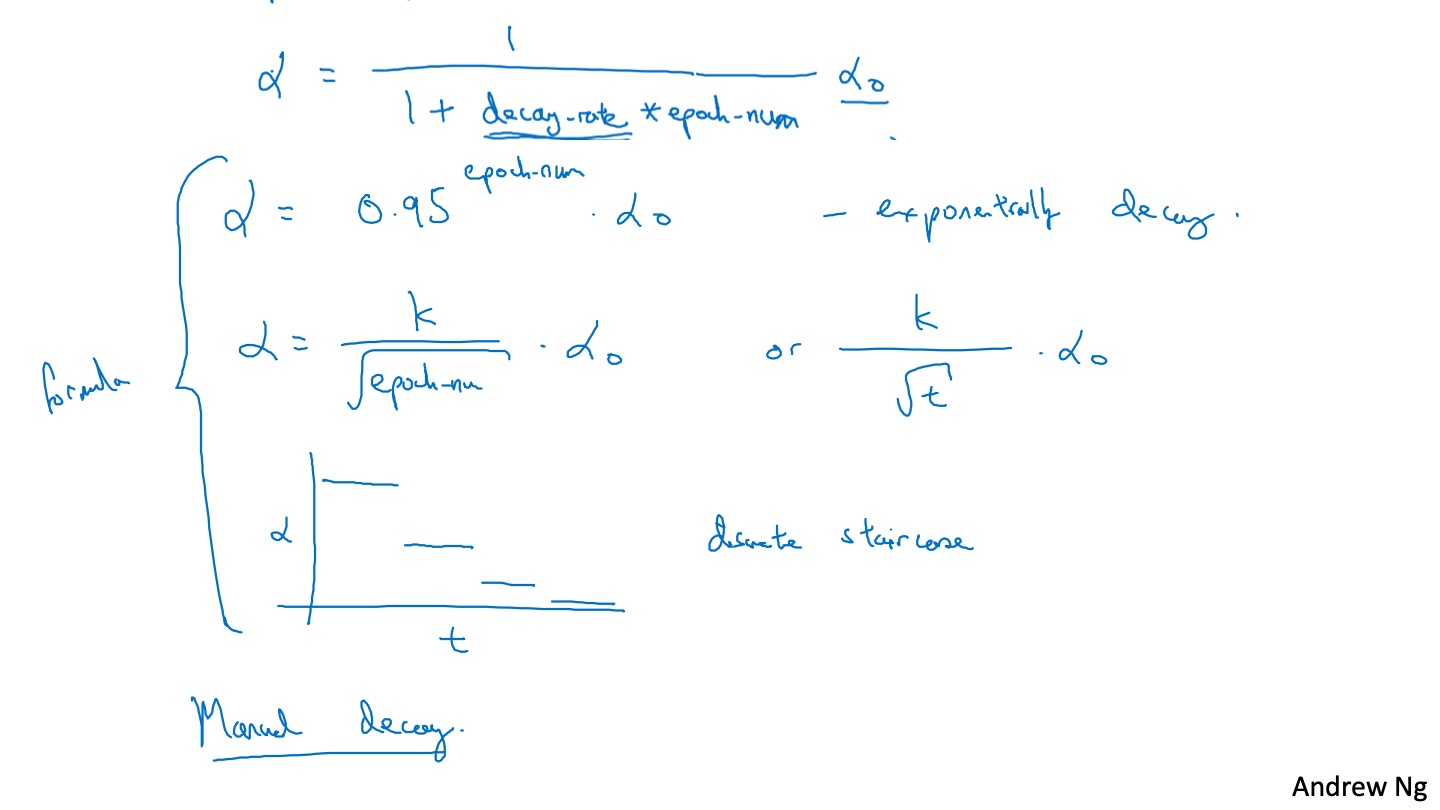 α = 1 / (1 + decay-rate * epoch-num) α₀
α = 0.95^epoch-num · α₀ - exponentially decay.
formula
α = k / √epoch-num · α₀ or k / √t · α₀
α
discrete staircase
t
Manual decay.
Andrew Ng